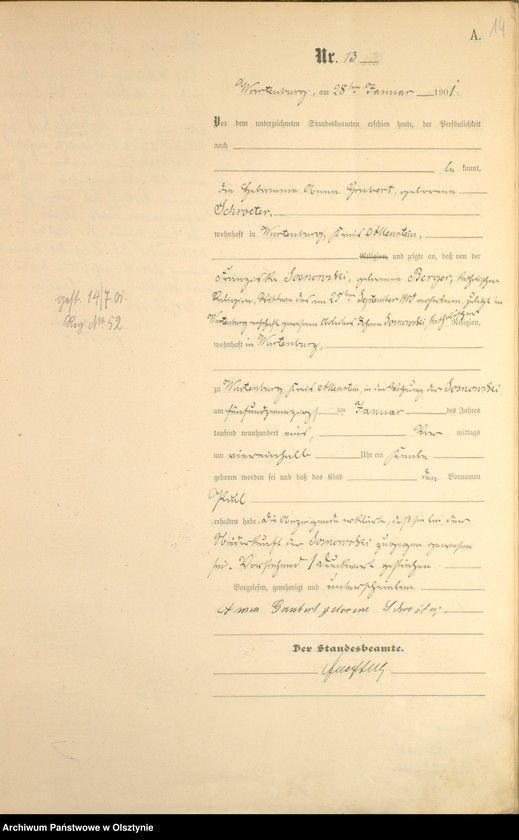 A.
14
Nr. 13
Wartenburg, am 28ten Januar 1901.
Vor dem unterzeichneten Standesbeamten erschien heute, der Persönlichkeit
nach
be kannt,
die Hebamme Anna Graubert, geborene
Schroeter,
wohnhaft in Wartenburg, Kreis Allenstein,
Religion, und zeigte an, daß von der
Franziska Sosnowski, geborene Berger, katholischer
Religion, Wittwe des am 25ten September 1900 verstorbenen, zuletzt in
Wartenburg wohnhaft gewesenen Arbeiters Johann Sosnowski, katholischer Religion,
wohnhaft in Wartenburg,
zu Wartenburg, Kreis Allenstein, in der Wohnung der Sosnowski
am fünfundzwanzigsten Januar des Jahres
tausend neunhundert eins, Vor mittags
um viereinhalb Uhr ein Knabe
geboren worden sei und daß das Kind den Vornamen
Paul
erhalten habe. Die Anzeigende erklärte, daß sie bei der
Niederkunft der Sosnowski zugegen gewesen
sei. Vorstehend 1 Druckwort gestrichen.
Vorgelesen, genehmigt und unterschrieben
Anna Graubert geborene Schroeter
Der Standesbeamte.
gest. 14/7. 01.
Reg. No. 52
Archiwum Państwowe w Olsztynie